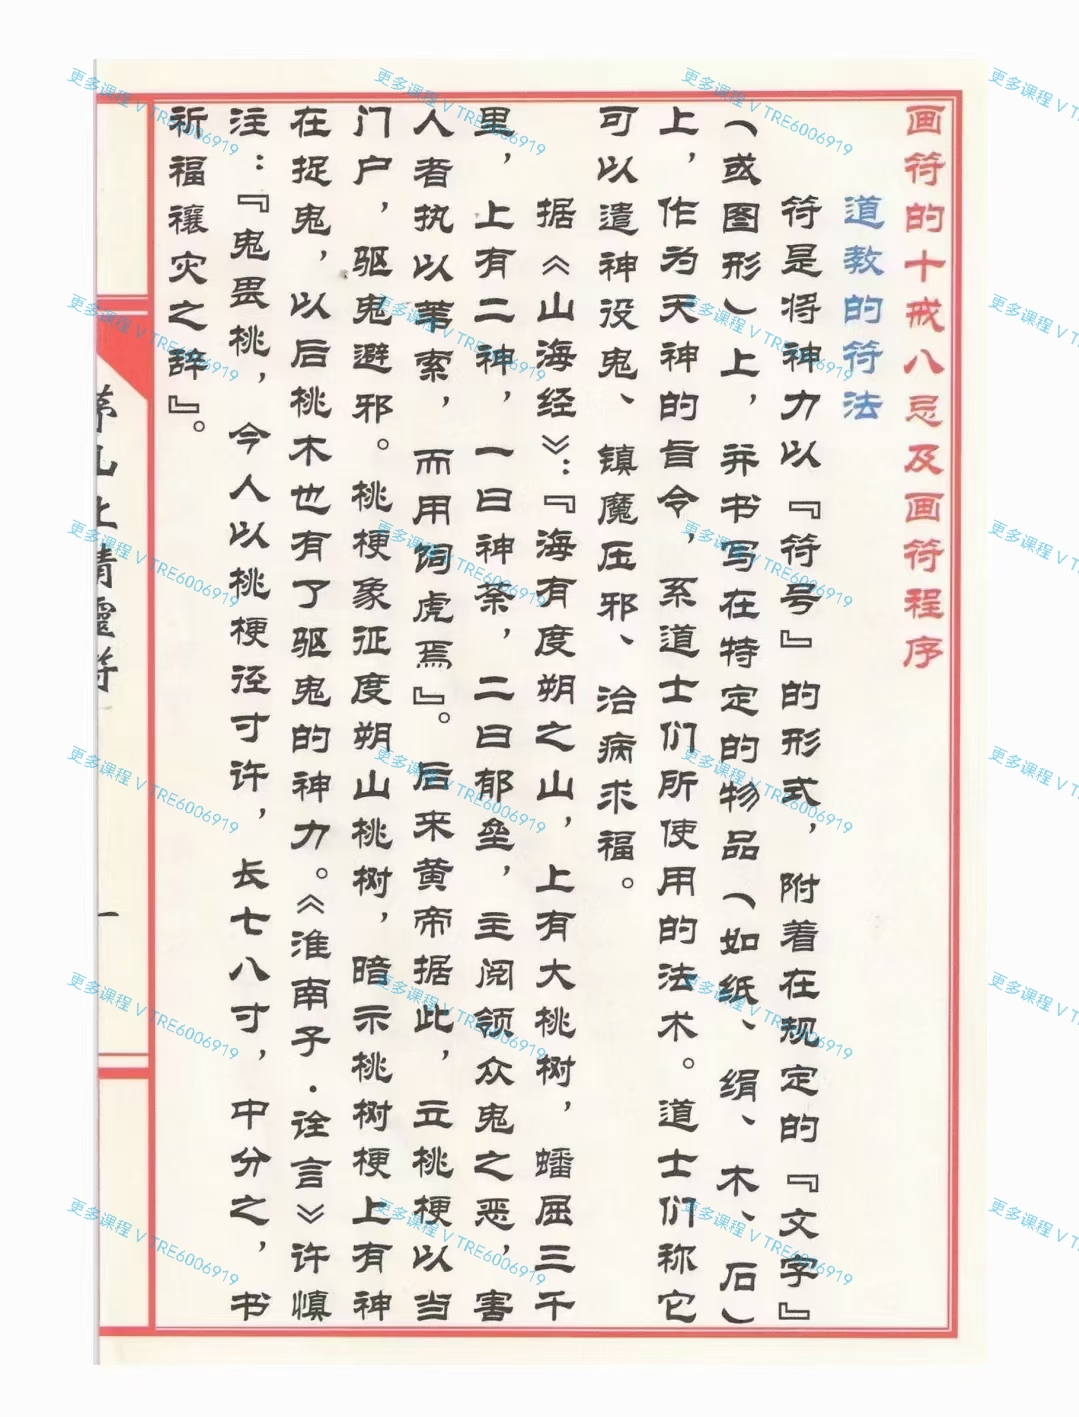 画符的十戒八忌及画符程序
道教的符法
符是将神力以『符号』的形式，附着在规定的『文字』
（或图形）上，并书写在特定的物品（如纸、绢、木、石）
上，作为天神的旨令，系道士们所使用的法术。道士们称它
可以遣神役鬼、镇魔压邪、治病求福。
据《山海经》：『海有度朔之山，上有大桃树，蟠屈三千
里，上有二神，一曰神荼，二曰郁垒，主阅领众鬼之恶，害
人者执以苇索，而用饲虎焉』。后来黄帝据此，立桃梗以当
门户，驱鬼避邪。桃梗象征度朔山桃树，暗示桃树梗上有神
在捉鬼，以后桃木也有了驱鬼的神力。《淮南子·诠言》许慎
注：『鬼畏桃，今人以桃梗径寸许，长七八寸，中分之，书
祈福禳灾之辞』。
茅山上清靈符
一
更多课程 V TRE6006919